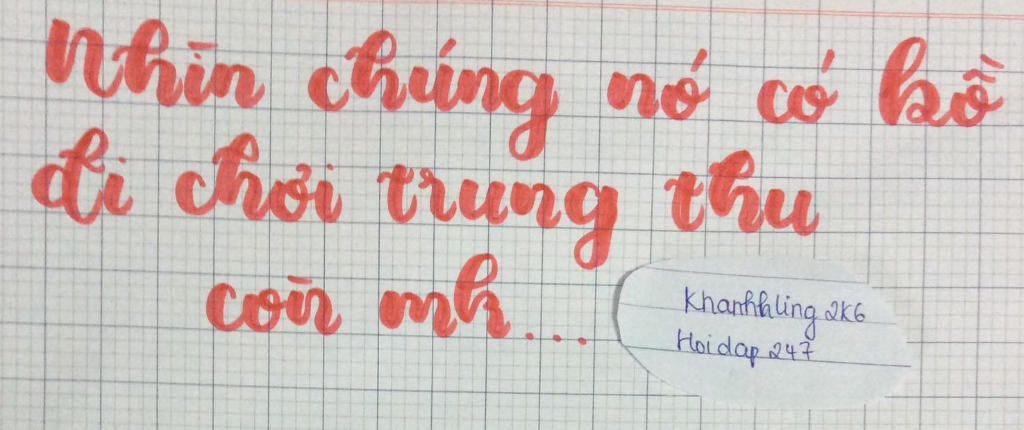 Nhìn chúng nó có bồ
đi chơi trung thu
còn mk...
Khanhhling 2K6
Hoidap 247